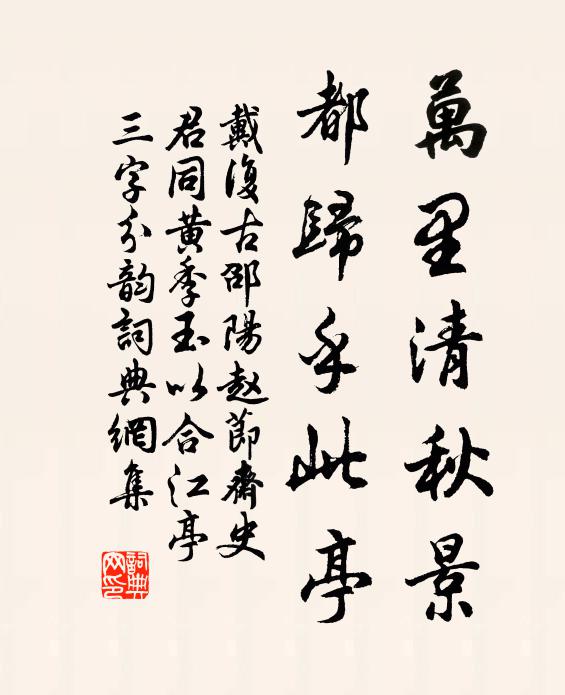 萬里清秋景
都歸乎此亭
戴復古邵陽赵節齋史
君同黄季玉以合江亭
三字分韵詞典網集
詞典网印